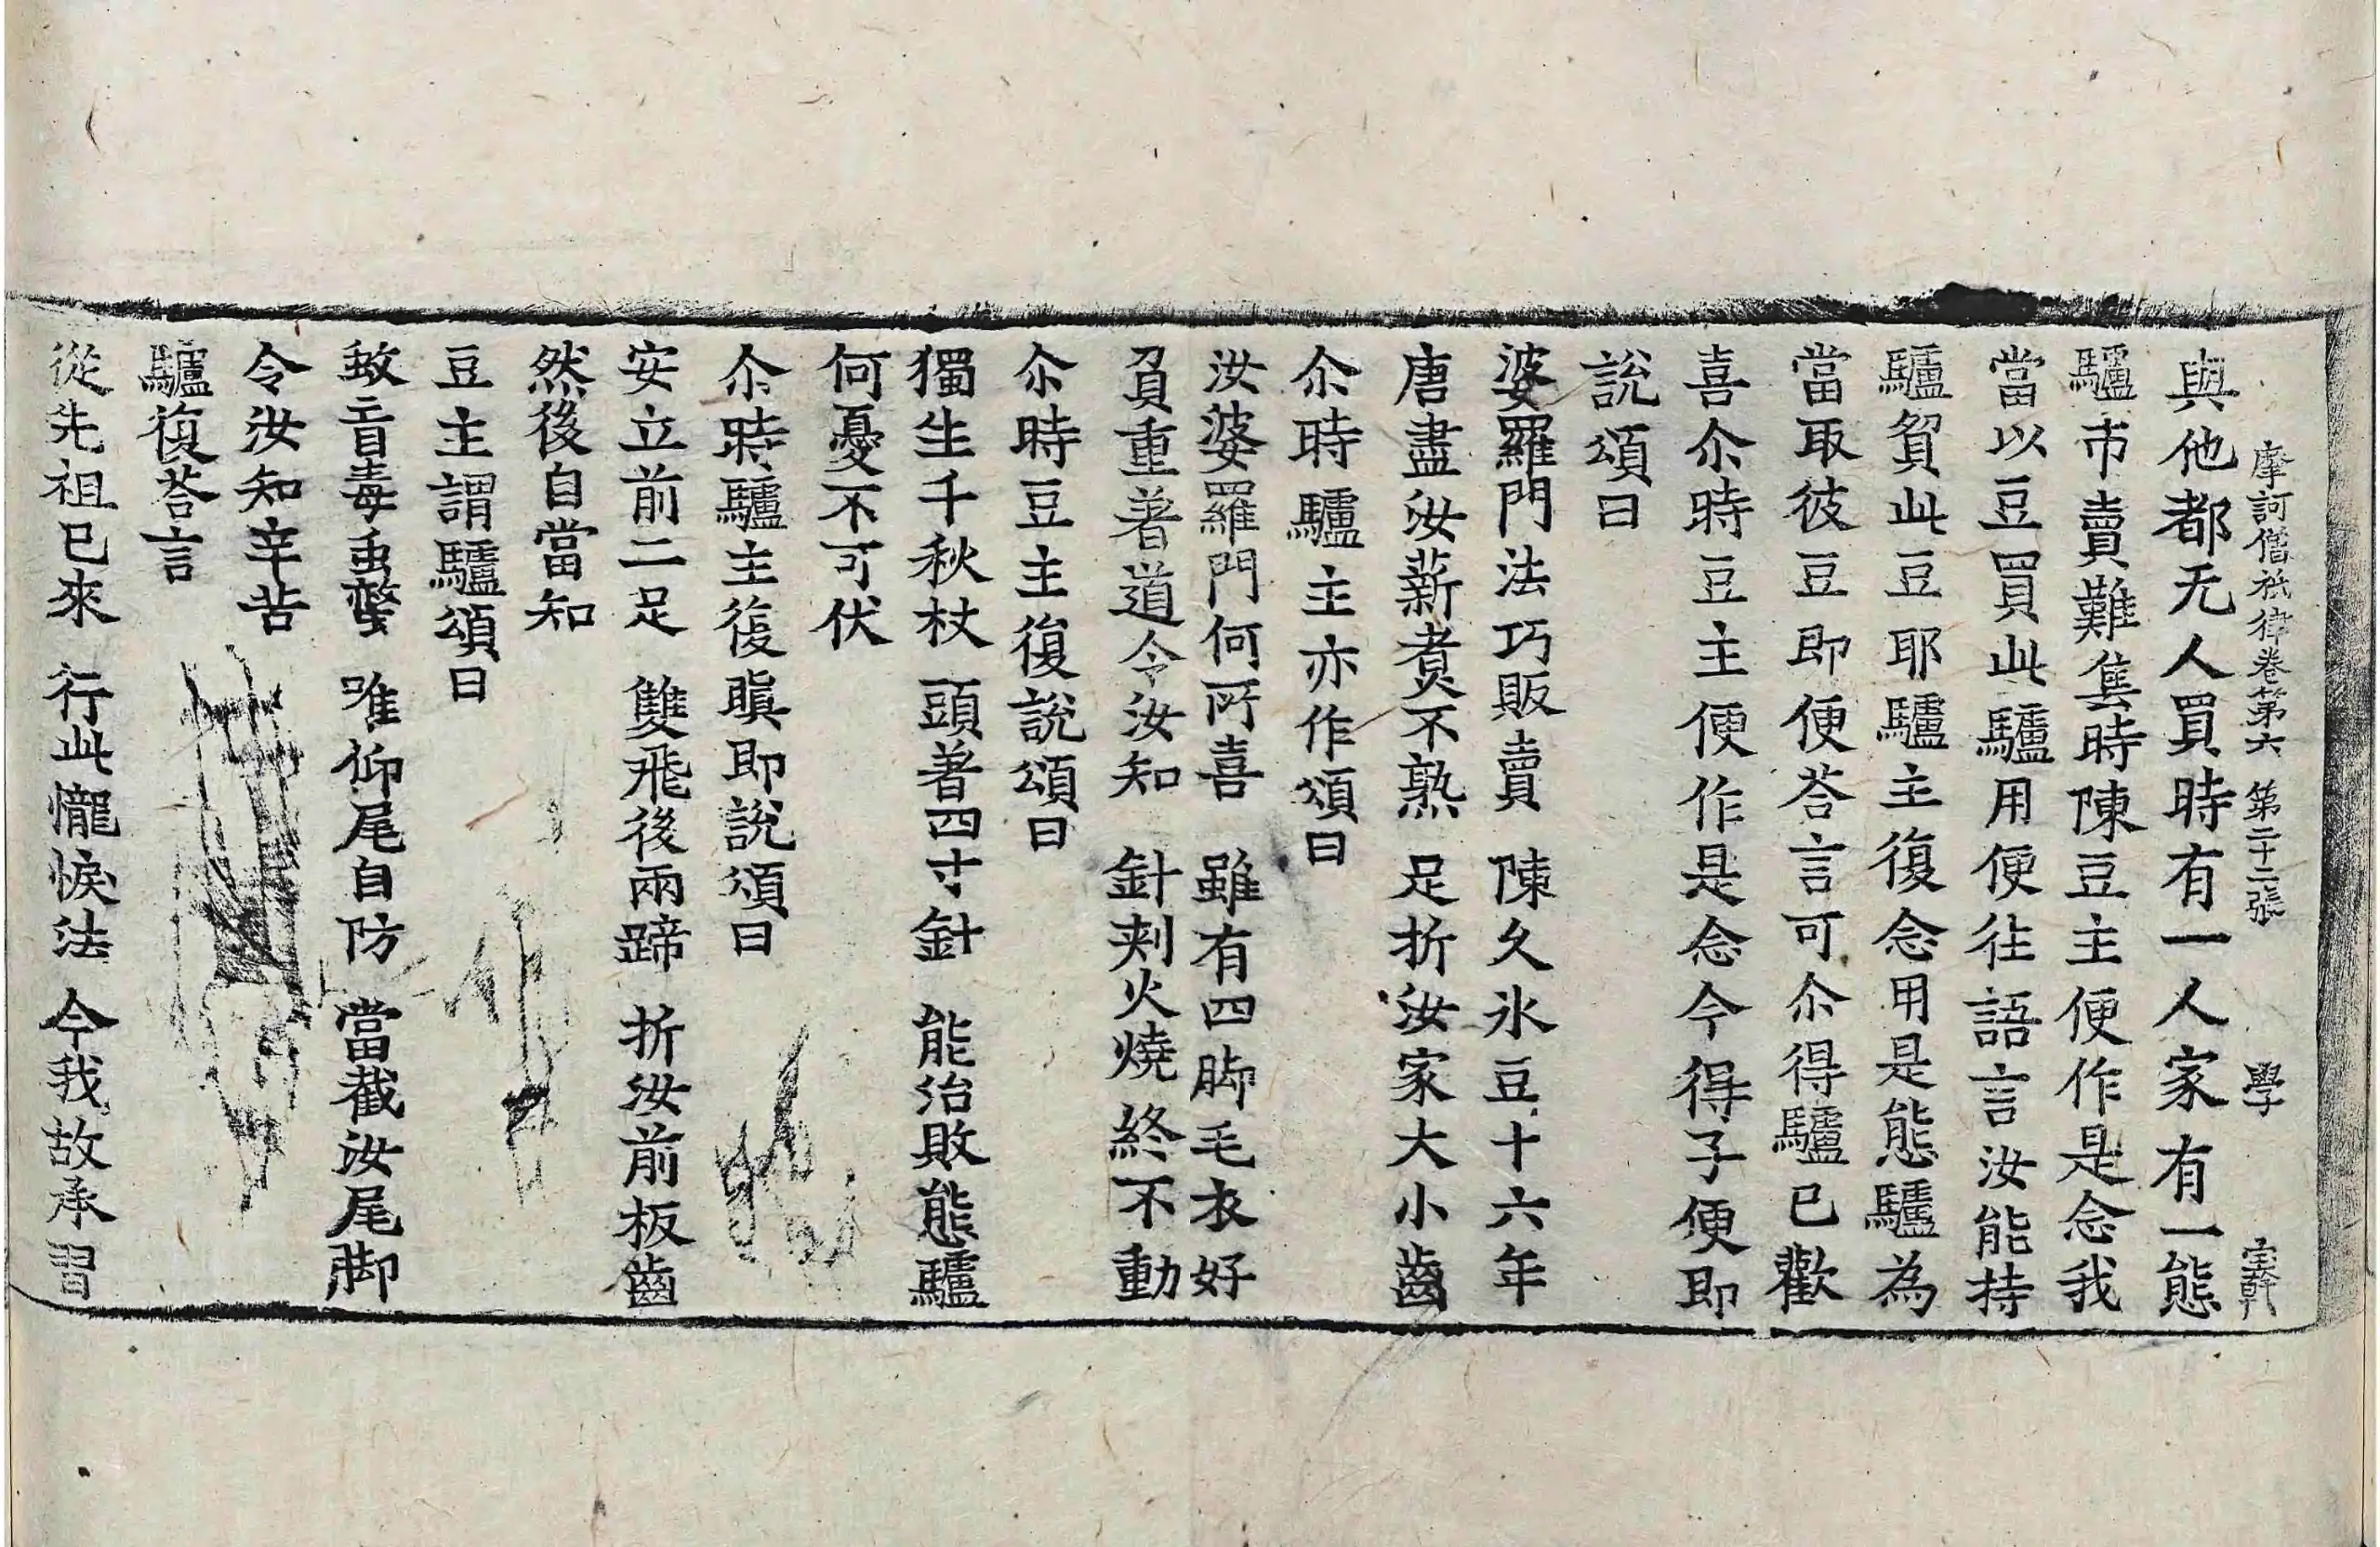 摩訶僧祇律卷第六 第二十二張 學 宝幹
與他都无人買時有一人家有一態
驢市賣難售時陳豆主便作是念我
當以豆買此驢用便往語言汝能持
驢貿此豆耶驢主復念用是態驢為
當取彼豆即便荅言可尒得驢已歡
喜尒時豆主便作是念今得子便即
說頌曰
婆羅門法巧販賣 陳久氷豆十六年
唐盡汝薪煑不熟 足折汝家大小齒
尒時驢主亦作頌曰
汝婆羅門何所喜 雖有四脚毛衣好
負重著道令汝知 針刾火燒終不動
尒時豆主復說頌曰
獨生千秋杖 頭著四寸針 能治敗態驢
何憂不可伏
尒時驢主復瞋即說頌曰
安立前二足 雙飛後兩蹄 折汝前板齒
然後自當知
豆主謂驢頌曰
蚊䖟毒虫螫 唯仰尾自防 當截汝尾脚
令汝知辛苦
驢復荅言
從先祖已來 行此𢤱悷法 今我故承習